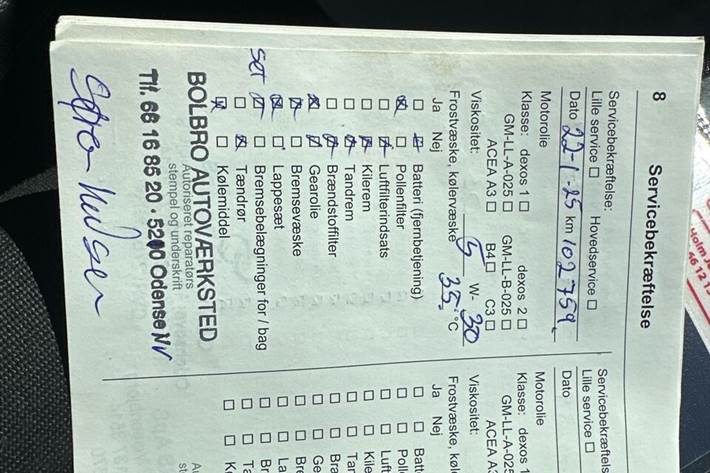 8
Servicebekræftelse
Servicebekræftelse:
Lille service ☐ Hovedservice ☐
Dato 22-1-25 km 102759
Motorolie
Klasse: dexos 1 ☐ dexos 2 ☐
GM-LL-A-025 ☐ GM-LL-B-025 ☐
ACEA A3 ☐ B4 ☐ C3 ☐
Viskositet: 5 W- 30
Frostvæske, kølervæske 35 -°C
Ja Nej
Batteri (fjernbetjening)
Pollenfilter
Luftfilterindsats
Kilerem
Tandrem
Brændstoffilter
Gearolie
Bremsevæske
Lappesæt
SET Bremsebelægninger for / bag
Tændrør
Kølemiddel
Autoriseret reparatørs
stempel og underskrift
BOLBRO AUTOVÆRKSTED
Tlf. 66 16 85 20 · 5200 Odense NV
Servicebekræftels
Lille service ☐
Dato
Motorolie
Klasse: dexos 1
GM-LL-A-025
ACEA A3
Viskositet:
Frostvæske, køl
Ja Nej
Batt
Poll
Luft
Kile
Tan
Bræ
Ge
Bre
La
Br
Tæ
Kø